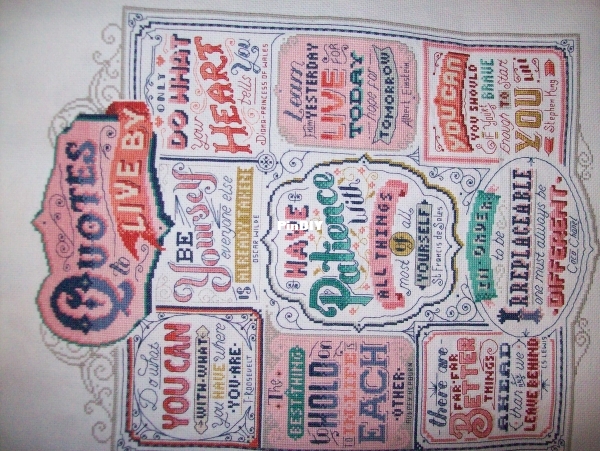 QUOTES
to LIVE BY
Do what
YOU CAN
WITH·WHAT
You HAVE where
·YOU·ARE·
T·ROOSEVELT
BE
Yourself
everyone else
IS ALREADY TAKEN
OSCAR WILDE
ONLY
DO WHAT
Your
HEART
tells You
DIANA·PRINCESS OF WALES
The
BEST THING
to HOLD ON
to IN LIFE is
EACH
·OTHER·
HAVE
Patience
With
ALL THINGS
most OF all
YOURSELF
St. Francis de Sales
Learn
From YESTERDAY
LIVE FOR
TODAY
hope for
TOMORROW
Albert Einstein
there are
FAR·FAR
BETTER
THINGS
AHEAD
than we
LEAVE BEHIND
IN ORDER
to be
IRREPLACEABLE
one must always be
·DIFFERENT·
Coco Chanel
YOU CAN
YOU SHOULD
& if you're BRAVE
enough TO Start
YOU will
Stephen King
PinDIY
.com